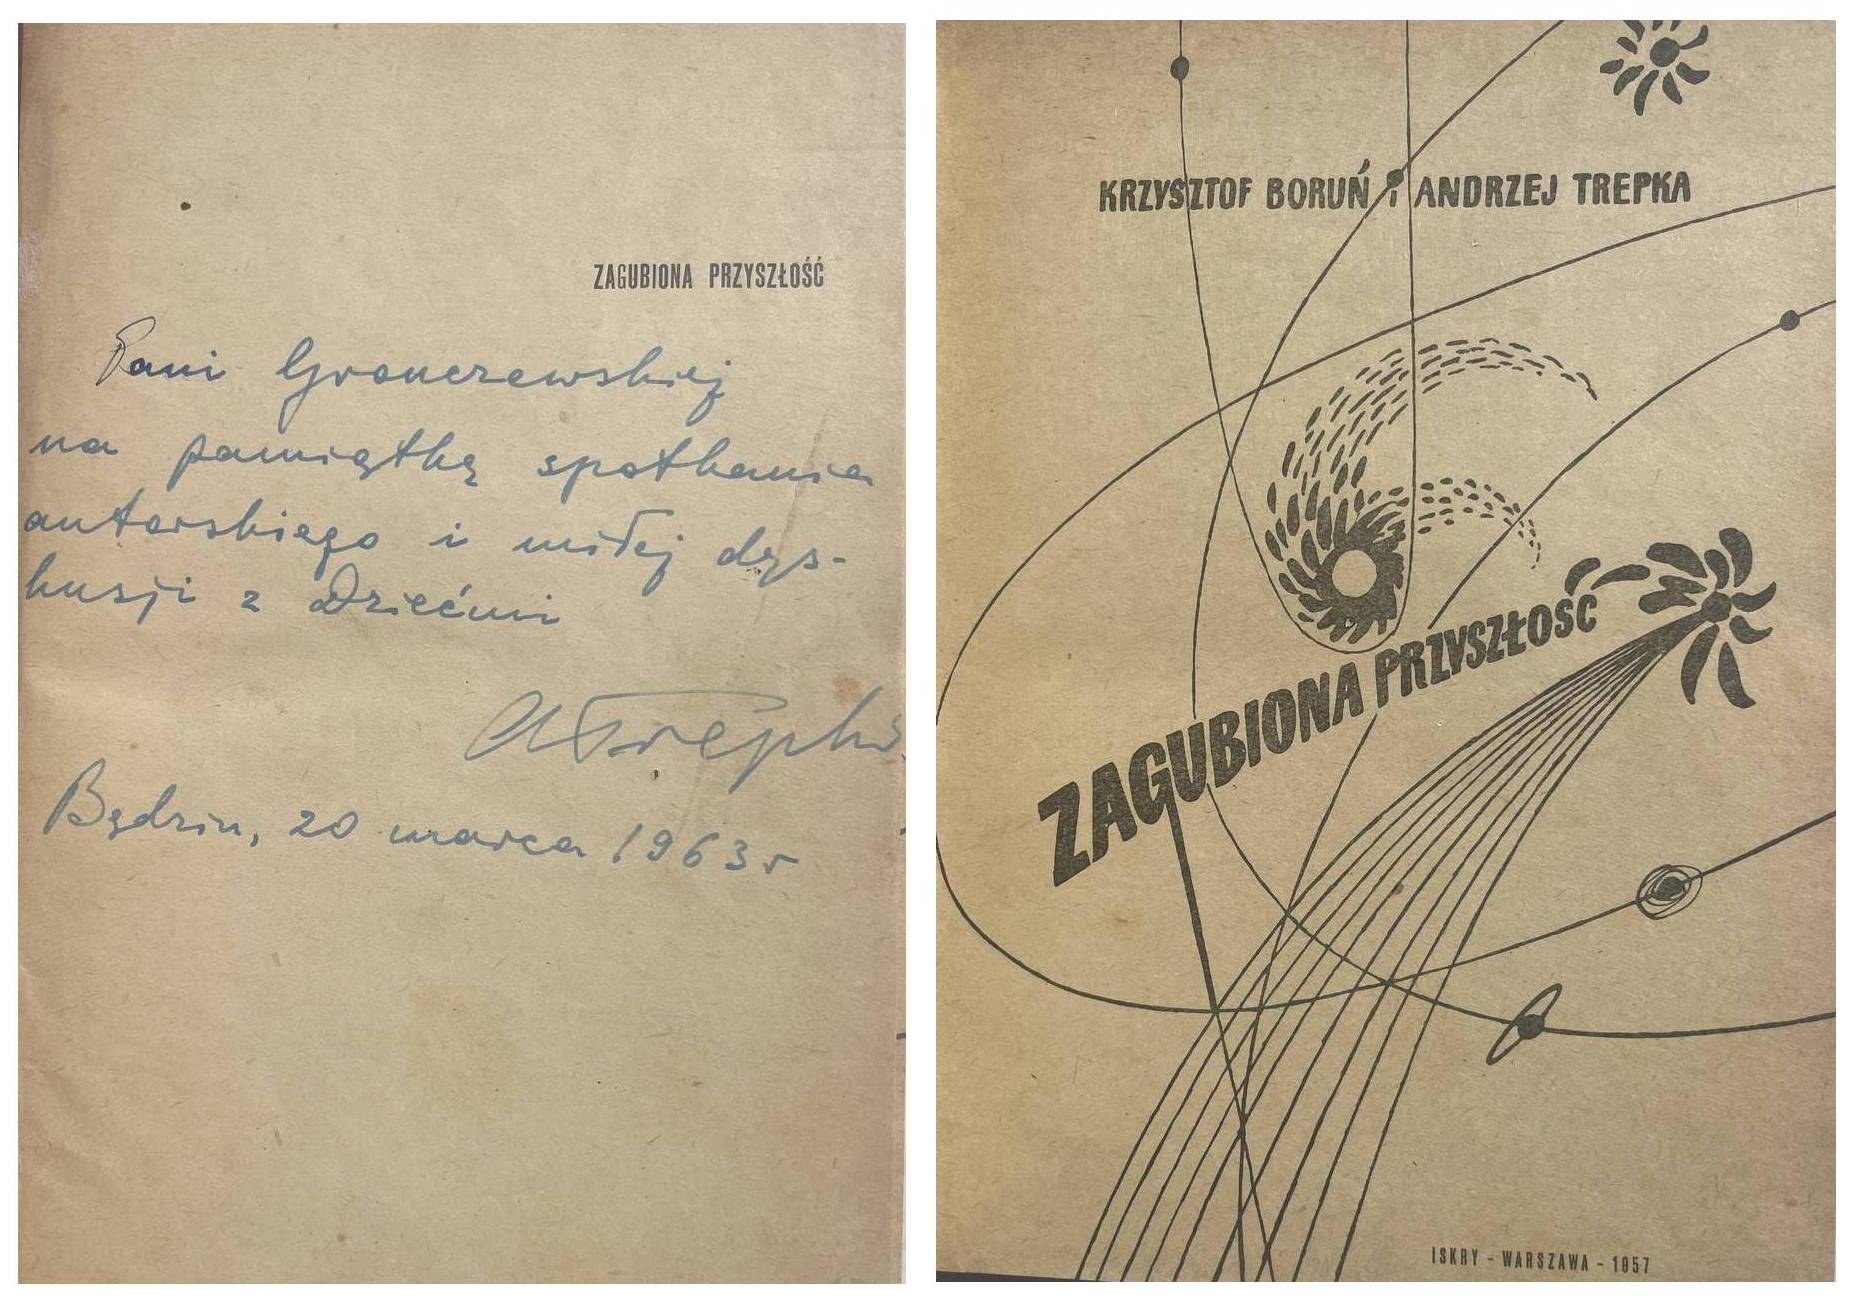 ZAGUBIONA PRZYSZŁOŚĆ
Pani Gronczewskiej
na pamiątkę spotkania
autorskiego i miłej dys-
kusji z Dziećmi
ATrepka
Będzin, 20 marca 1963 r
KRZYSZTOF BORUŃ i ANDRZEJ TREPKA
ZAGUBIONA PRZYSZŁOŚĆ
ISKRY - WARSZAWA - 1957